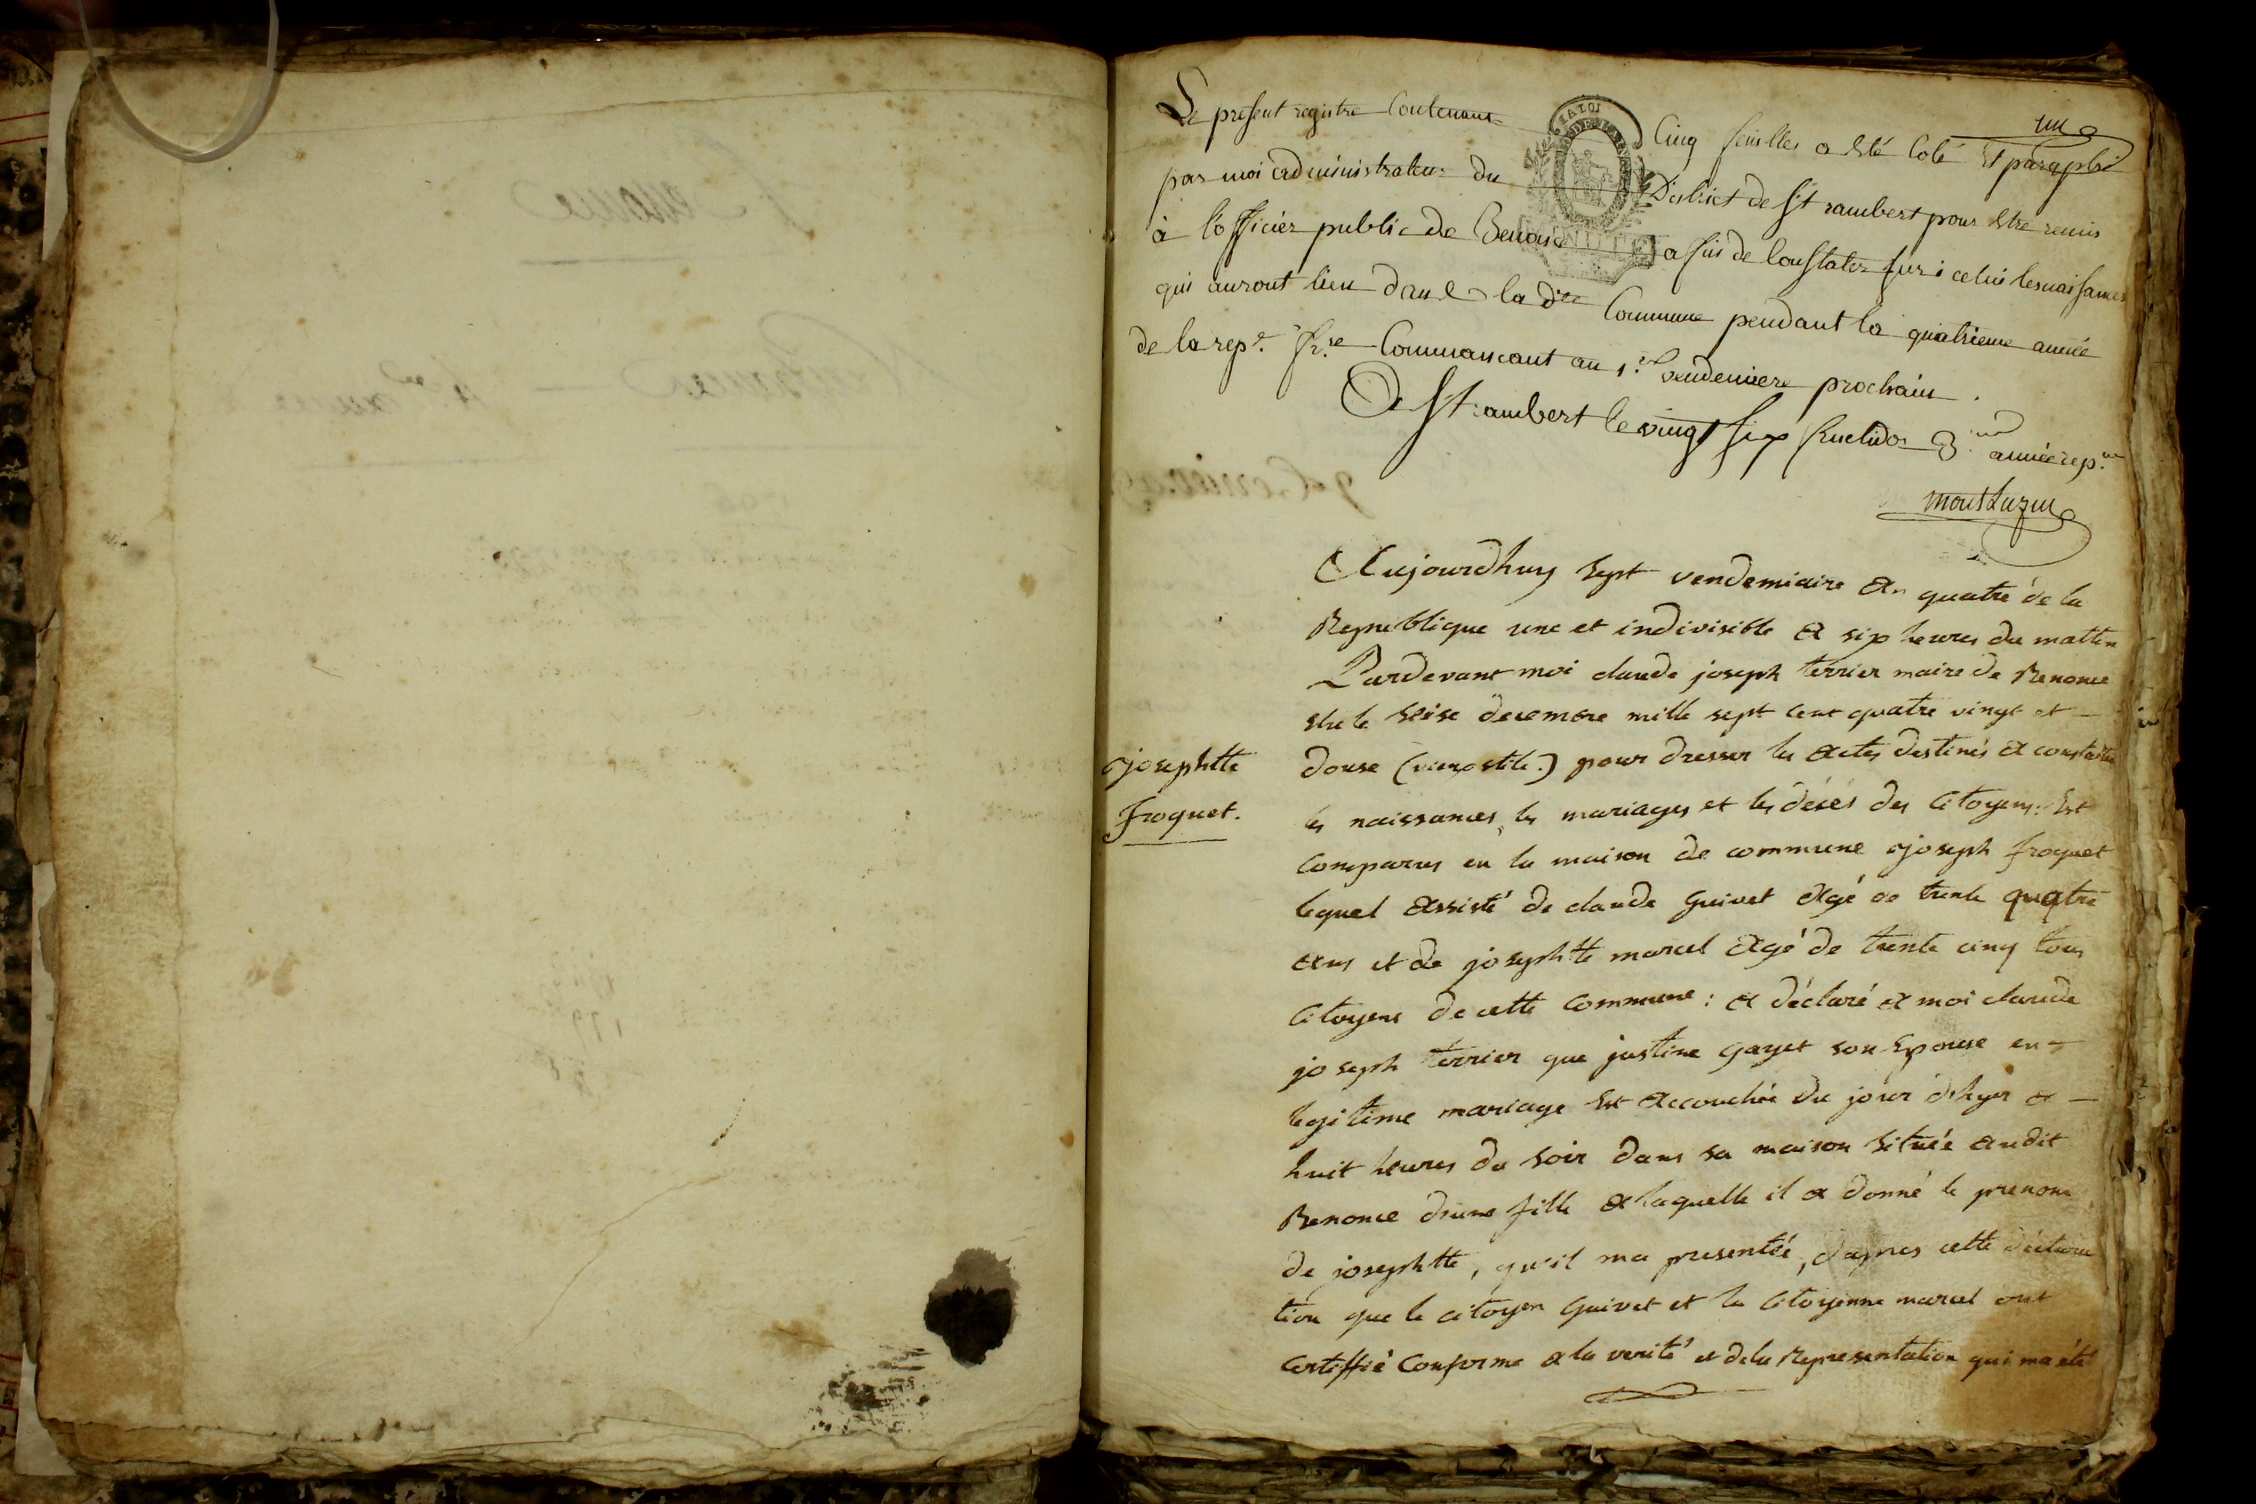 un
Le present registre Contenant Cinq feuilles a été Coté et paraphé
par moi administrateur du District de St rambert pour être remis
à l'officier public de Benonce afin de Constater sur icelui les naissances
qui auront lieu dans la dte Commune pendant la quatrieme année
de la rep.e fr.se Commancant au 1.er vendemiere prochain.
A St rambert le vingt six fructidor 3.me année rep.ne
montluzin
Aujourdhuy sept vendemiaire an quatre de la
Republique une et indivisible a six heures du mattin
Pardevant moi claude joseph terrier maire de Benonce
elu le seise decembre mille sept cent quatre vingt et
douse (vieux stile.) pour dresser les actes destinés a constater
les naissances, les mariages et les décés des Citoyens: Est
Comparus en la maison de commune joseph froquet
lequel assisté de claude Guivet agé de trente quatre
ans et de josephtte marcel agé de trente cinq tous
Citoyens de cette commune: a déclaré a moi claude
joseph terrier que justine gayet son Epouse en
legitime mariage est accouchée du jour d'hyer a
huit heures du soir dans sa maison située audit
Benonce d'une fille a laquelle il a donné le prenom
de josephtte, qu'il ma presentée, d'apres cette déclara
tion que le citoyen Guivet et la Citoyenne marcel ont
certiffié Conforme a la verité et de la Representation qui ma été
josephtte
froquet.